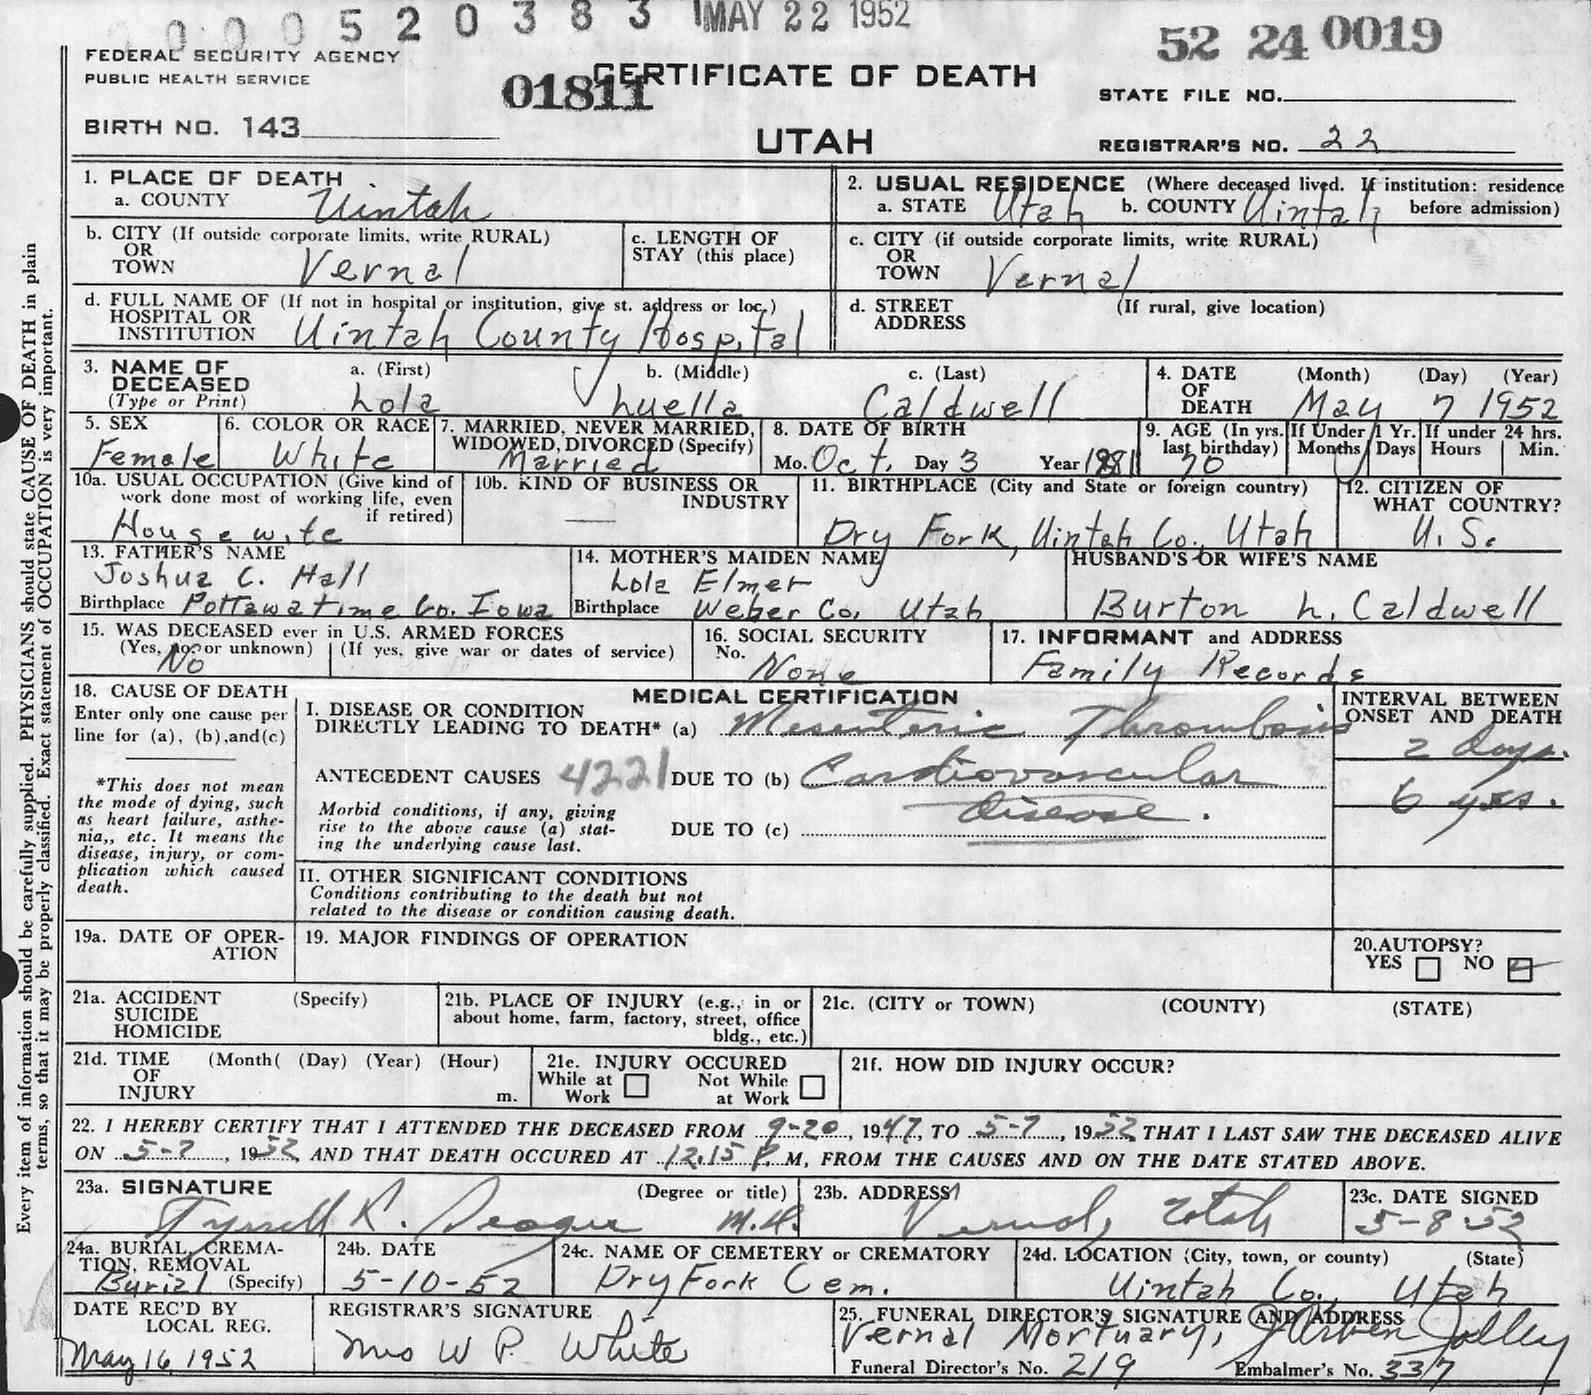 000520383 MAY 22 1952
52 24 0019
FEDERAL SECURITY AGENCY
PUBLIC HEALTH SERVICE
01811
CERTIFICATE OF DEATH
STATE FILE NO.
BIRTH NO. 143
UTAH
REGISTRAR'S NO. 22
1. PLACE OF DEATH
a. COUNTY Uintah
2. USUAL RESIDENCE (Where deceased lived. If institution: residence
a. STATE Utah b. COUNTY Uintah before admission)
b. CITY (If outside corporate limits, write RURAL)
OR
TOWN Vernal
c. LENGTH OF
STAY (this place)
c. CITY (if outside corporate limits, write RURAL)
OR
TOWN Vernal
d. FULL NAME OF (If not in hospital or institution, give st. address or loc.)
HOSPITAL OR
INSTITUTION Uintah County Hospital
d. STREET (If rural, give location)
ADDRESS
3. NAME OF
DECEASED
(Type or Print)
a. (First) b. (Middle) c. (Last)
Lola Luella Caldwell
4. DATE (Month) (Day) (Year)
OF
DEATH May 7 1952
5. SEX
Female
6. COLOR OR RACE
White
7. MARRIED, NEVER MARRIED,
WIDOWED, DIVORCED (Specify)
Married
8. DATE OF BIRTH
Mo. Oct. Day 3 Year 1881
9. AGE (In yrs.
last birthday)
70
If Under 1 Yr.
Months Days
If under 24 hrs.
Hours Min.
10a. USUAL OCCUPATION (Give kind of
work done most of working life, even
if retired)
Housewife
10b. KIND OF BUSINESS OR
INDUSTRY
—
11. BIRTHPLACE (City and State or foreign country)
Dry Fork, Uintah Co., Utah
12. CITIZEN OF
WHAT COUNTRY?
U. S.
13. FATHER'S NAME
Joshua C. Hall
Birthplace Pottawatime Co. Iowa
14. MOTHER'S MAIDEN NAME
Lola Elmer
Birthplace Weber Co. Utah
HUSBAND'S OR WIFE'S NAME
Burton L. Caldwell
15. WAS DECEASED ever in U.S. ARMED FORCES
(Yes, no, or unknown) (If yes, give war or dates of service)
No
16. SOCIAL SECURITY
No.
None
17. INFORMANT and ADDRESS
Family Records
18. CAUSE OF DEATH
Enter only one cause per
line for (a), (b),and(c)
*This does not mean
the mode of dying, such
as heart failure, asthe-
nia,, etc. It means the
disease, injury, or com-
plication which caused
death.
MEDICAL CERTIFICATION
I. DISEASE OR CONDITION
DIRECTLY LEADING TO DEATH* (a) Mesenteric Thrombosis
ANTECEDENT CAUSES 4221 DUE TO (b) Cardiovascular
disease.
Morbid conditions, if any, giving
rise to the above cause (a) stat-
ing the underlying cause last.
DUE TO (c)
INTERVAL BETWEEN
ONSET AND DEATH
2 days.
6 yrs.
II. OTHER SIGNIFICANT CONDITIONS
Conditions contributing to the death but not
related to the disease or condition causing death.
19a. DATE OF OPER-
ATION
19. MAJOR FINDINGS OF OPERATION
20.AUTOPSY?
YES NO
21a. ACCIDENT (Specify)
SUICIDE
HOMICIDE
21b. PLACE OF INJURY (e.g., in or
about home, farm, factory, street, office
bldg., etc.)
21c. (CITY or TOWN) (COUNTY) (STATE)
21d. TIME (Month( (Day) (Year) (Hour)
OF
INJURY m.
21e. INJURY OCCURED
While at Work Not While at Work
21f. HOW DID INJURY OCCUR?
22. I HEREBY CERTIFY THAT I ATTENDED THE DECEASED FROM 9-20, 1947, TO 5-7, 1952 THAT I LAST SAW THE DECEASED ALIVE
ON 5-7, 1952 AND THAT DEATH OCCURED AT 12.15 P. M, FROM THE CAUSES AND ON THE DATE STATED ABOVE.
23a. SIGNATURE (Degree or title)
Tyrrell R. Seager M.D.
23b. ADDRESS
Vernal, Utah
23c. DATE SIGNED
5-8-52
24a. BURIAL, CREMA-
TION, REMOVAL
Burial (Specify)
24b. DATE
5-10-52
24c. NAME OF CEMETERY or CREMATORY
Dry Fork Cem.
24d. LOCATION (City, town, or county) (State)
Uintah Co., Utah
DATE REC'D BY
LOCAL REG.
May 16, 1952
REGISTRAR'S SIGNATURE
Mrs W P. White
25. FUNERAL DIRECTOR'S SIGNATURE (AND ADDRESS
Vernal Mortuary, Jolley
Funeral Director's No. 219 Embalmer's No. 337
Every item of information should be carefully supplied. PHYSICIANS should state CAUSE OF DEATH in plain
terms, so that it may be properly classified. Exact statement of OCCUPATION is very important.